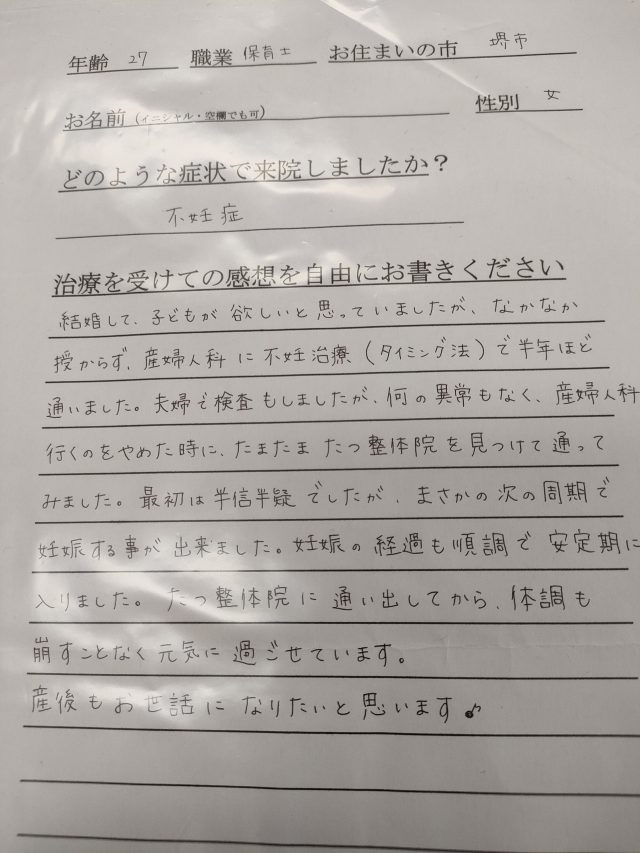 年齢 27 職業 保育士 お住まいの市 堺市
お名前(イニシャル・空欄でも可) 性別 女
どのような症状で来院しましたか?
不妊症
治療を受けての感想を自由にお書きください
結婚して、子どもが欲しいと思っていましたが、なかなか
授からず、産婦人科に不妊治療(タイミング法)で半年ほど
通いました。夫婦で検査もしましたが、何の異常もなく、産婦人科
行くのをやめた時に、たまたま たつ整体院を見つけて通って
みました。最初は半信半疑でしたが、まさかの次の周期で
妊娠する事が出来ました。妊娠の経過も順調で安定期に
入りました。たつ整体院に通い出してから、体調も
崩すことなく元気に過ごせています。
産後もお世話になりたいと思います♪